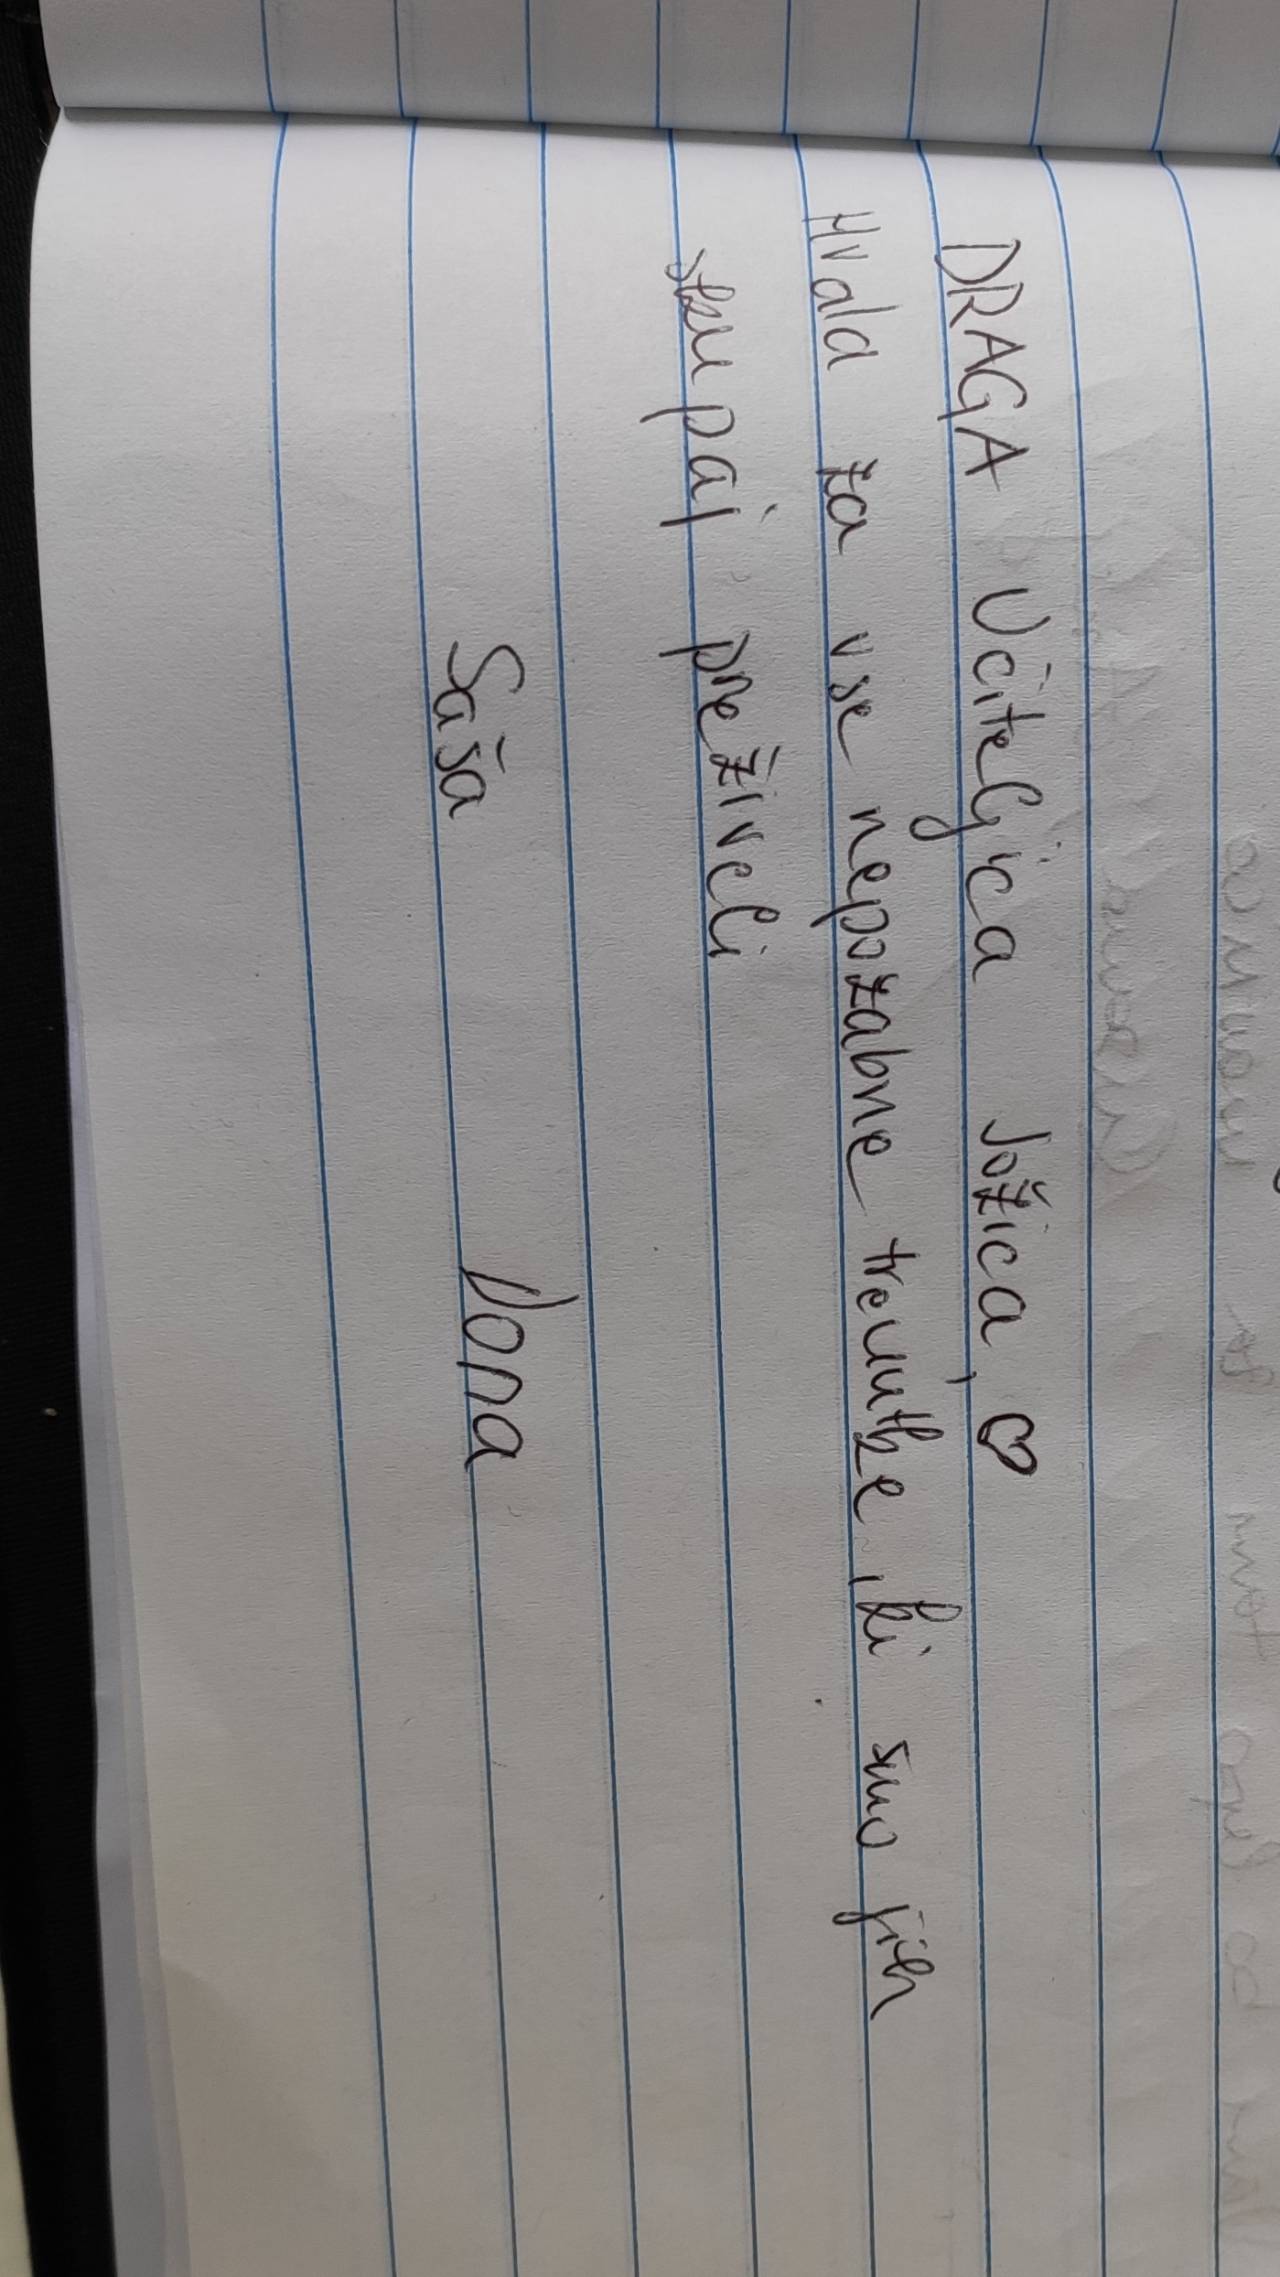 DRAGA Učiteljica Jožica, ♡
Hvala za vse nepozabne trenutke, ki smo jih
skupaj preživeli
Saša Dona